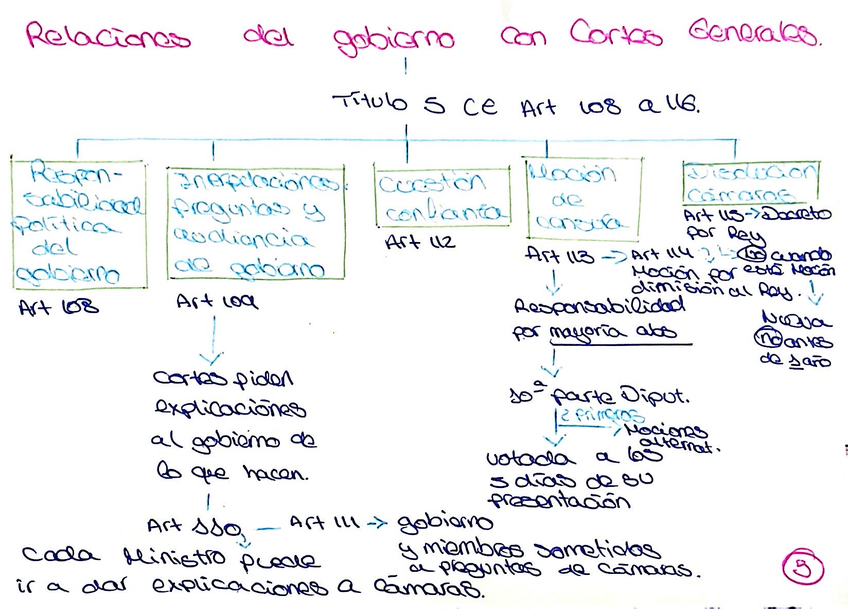 Relaciones del gobierno con Cortes Generales.
Título 5 CE Art 108 a 116.
Respon-
sabilidad
política
del
gobierno
Art 108
Inerpelaciones.
preguntas y
audiencia
de gobierno
Art 109
Cortes piden
explicaciones
al gobierno de
lo que hacen.
Art 110 — Art 111 → gobierno
y miembros sometidos
a preguntas de Cámaras.
Cada Ministro puede
ir a dar explicaciones a Cámaras.
Cuestión
confianza
Art 112
Moción
de
censura
Art 113 → Art 114
Moción por
dimisión al Rey.
Responsabilidad
por mayoría abs
10ª parte Diput.
2 primeros
Mociones
alternat.
votada a los
5 días de su
presentación
Disolución
Cámaras
Art 115 → Decreto
por Rey
no cuando
está Moción
Nueva
no antes
de 1 año